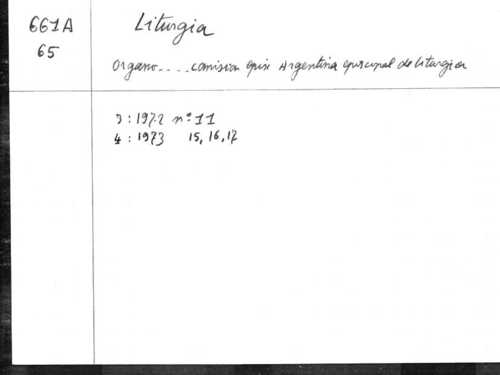 661A
65
Liturgia
Organo.... comision epis Argentina episcopal de liturgia
3 : 1972 nº 11
4 : 1973 15, 16, 17